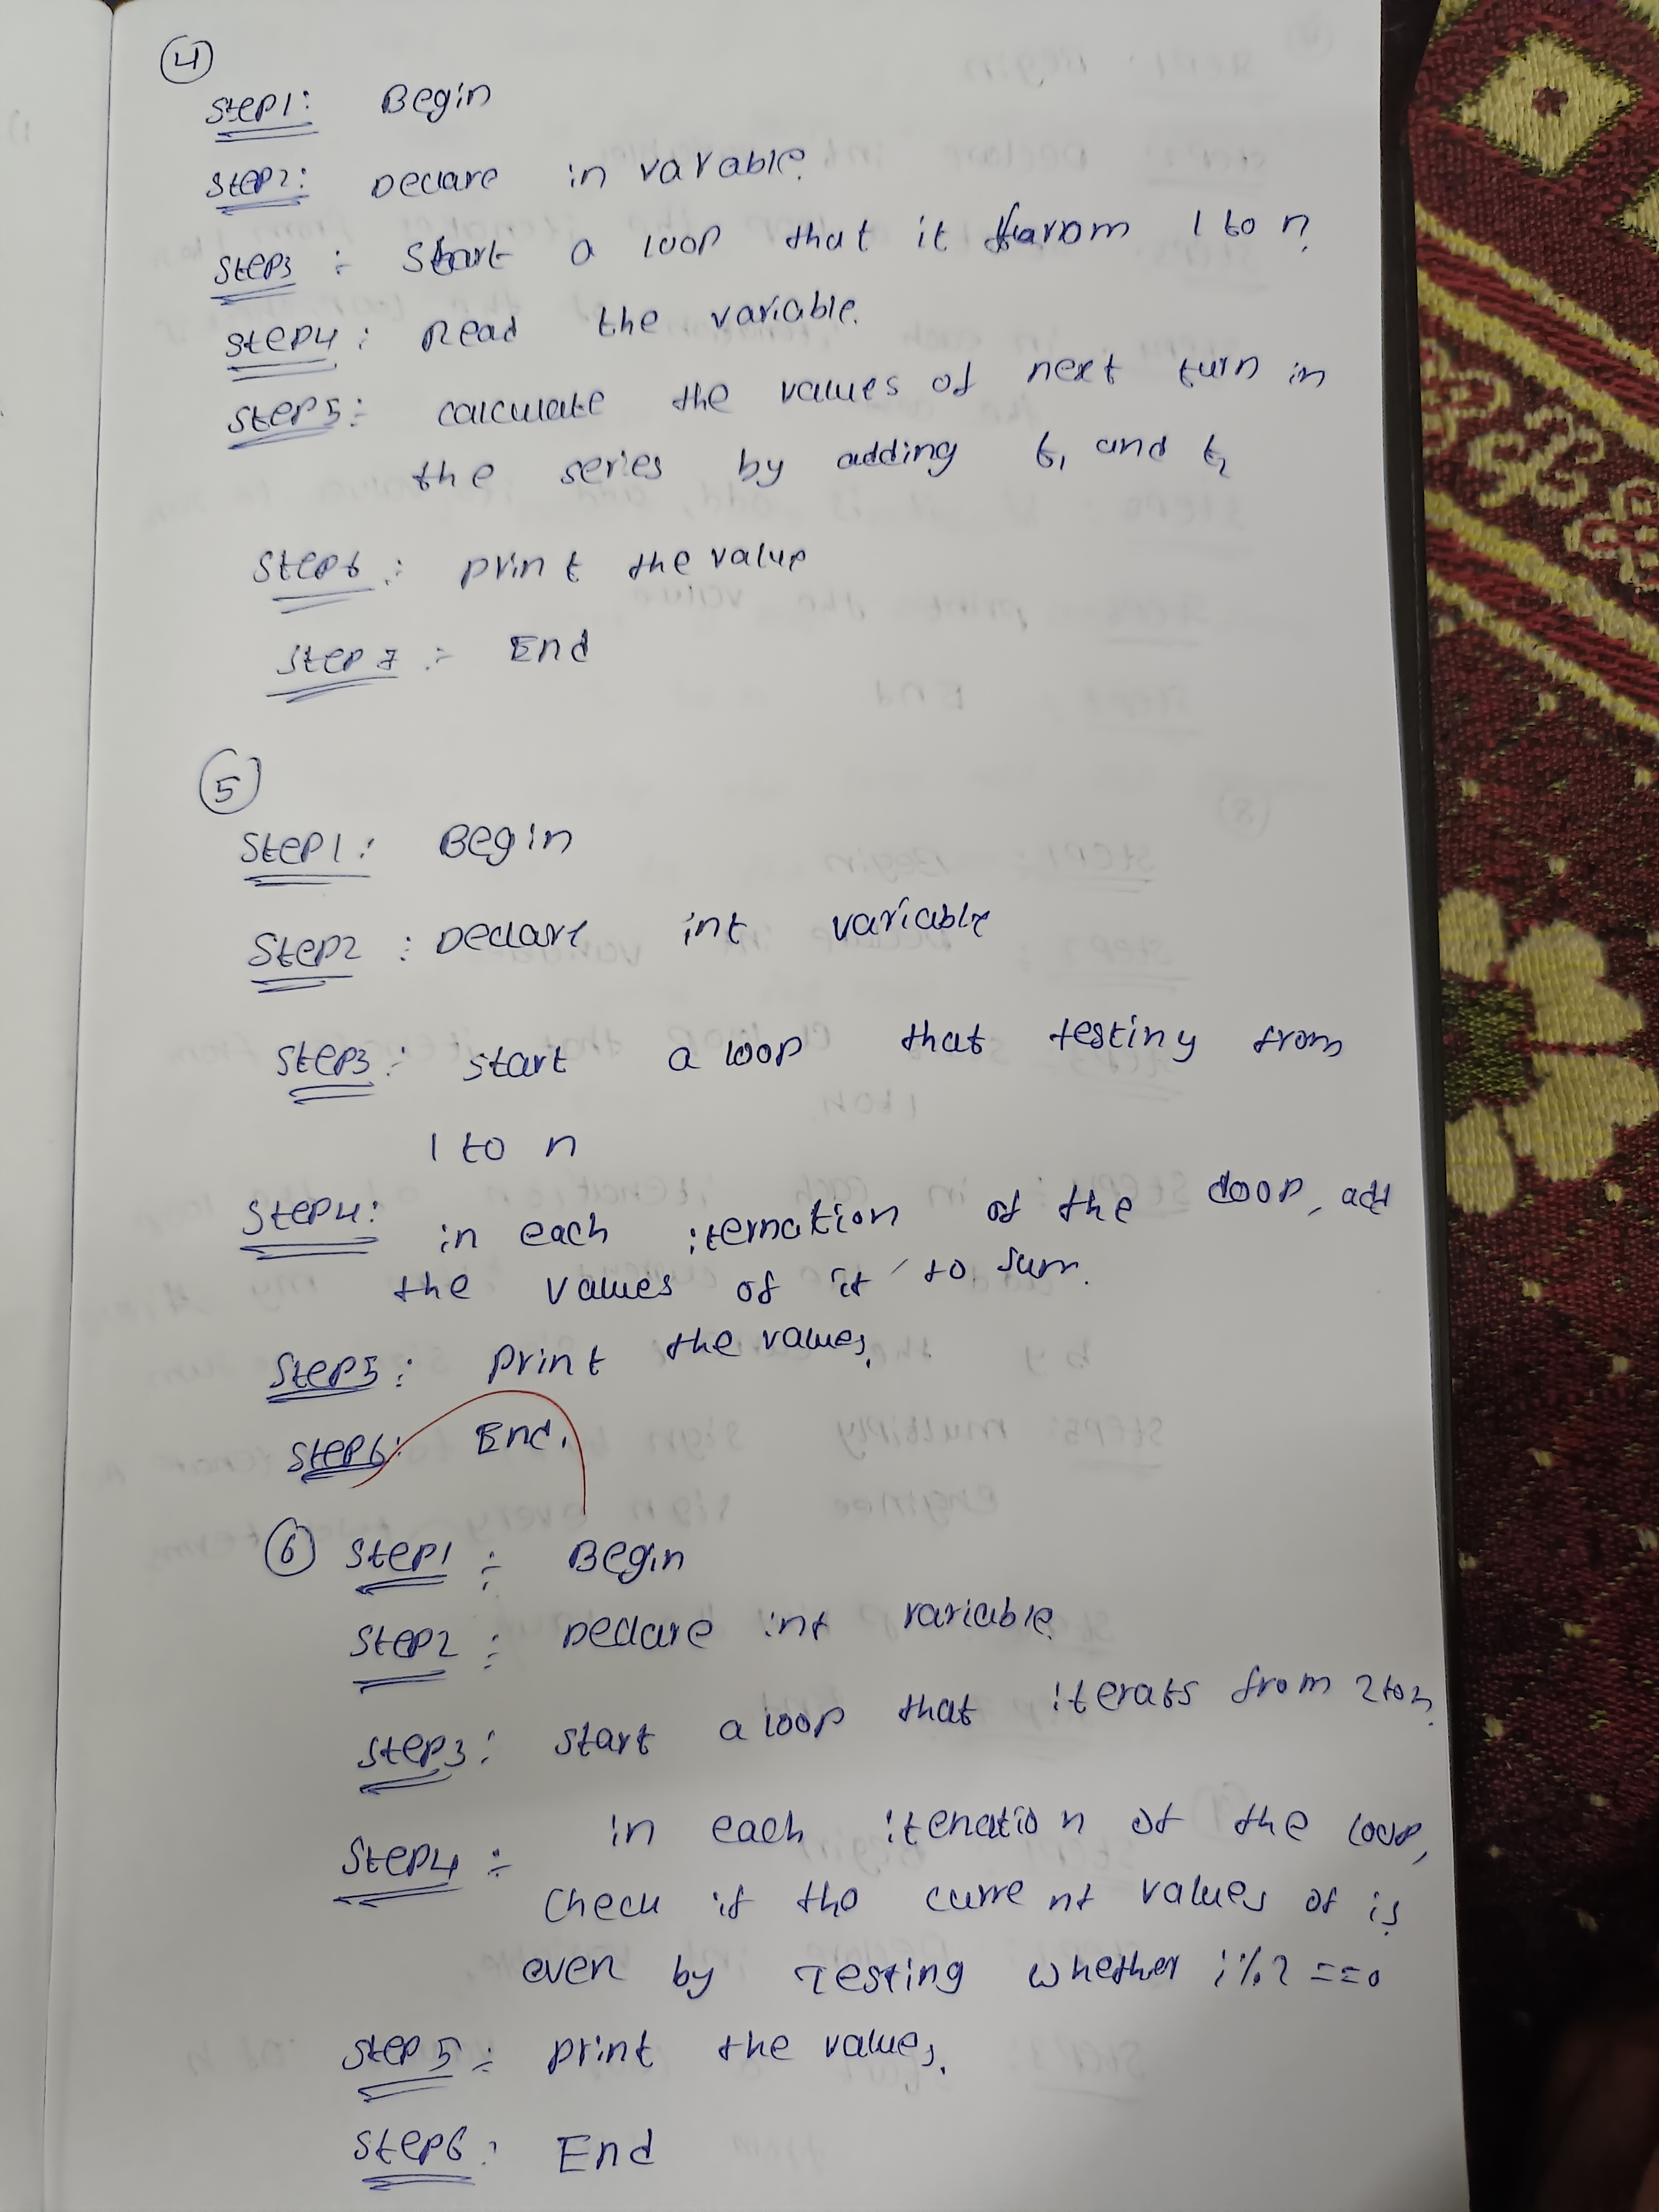 4
Step1: Begin
Step2: Declare in varable.
Step3 : Start a loop that it from 1 to n.
Step4 : Read the variable.
Step5: calculate the values of next turn in
the series by adding t1 and t2
Step6 : print the value
Step 7 : End
5
Step1: Begin
Step2 : Declare int variable
Step3: start a loop that testiny from
1 to n
Step4: in each iternation of the doop, add
the values of it to sum.
Step5: print the values.
Step6: End.
6 Step1 : Begin
Step2 : Declare int variable.
Step3: start a loop that iterats from 2 to n.
Step4 : in each itenation of the loop,
Check if the current values of is
even by Testing whether i%2 ==0
Step 5 : print the values.
Step6: End